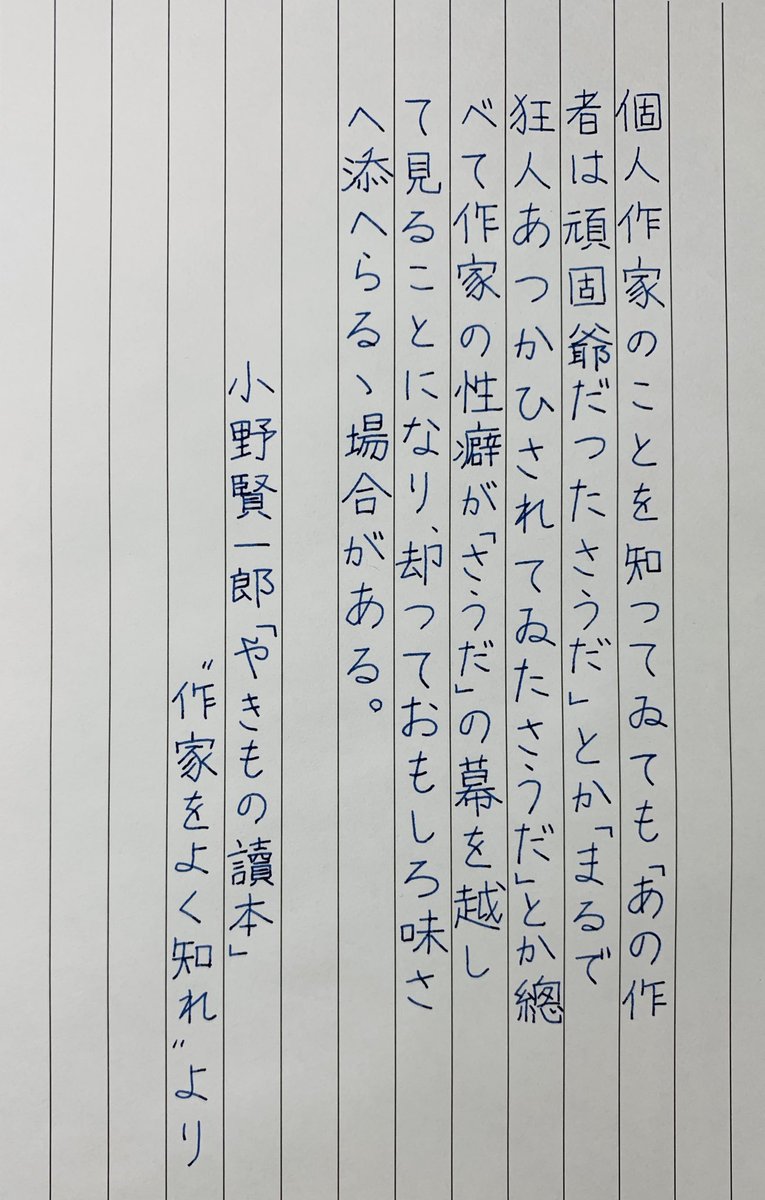 個人作家のことを知ってゐても「あの作
者は頑固爺だつたさうだ」とか「まるで
狂人あつかひされてゐたさうだ」とか總
べて作家の性癖が「さうだ」の幕を越し
て見ることになり、却つておもしろ味さ
へ添へらるゝ場合がある。
小野賢一郎「やきもの讀本」
〝作家をよく知れ〟より